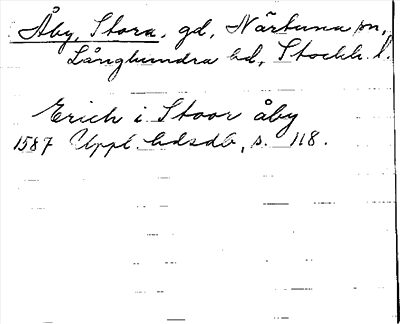 Åby, Stora, gd, Närtuna sn,
Långhundra hd, Stockh. l.
Erich i Stoor åby
1587 Uppl. hdsdb, s. 118.